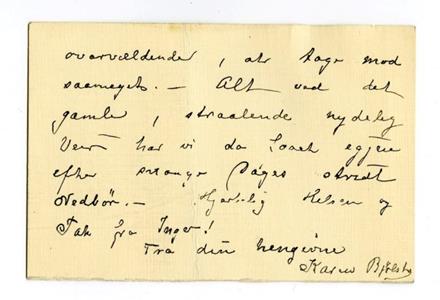 overvældende, at tage mod
saameget. – Alt ved det
gamle, straalende nydelig
Veir har vi da faaet igjen
efter mange Dages
Nedbør. – Hjertelig Hilsen og
Tak fra Inger!
Fra din hengivne
Karen